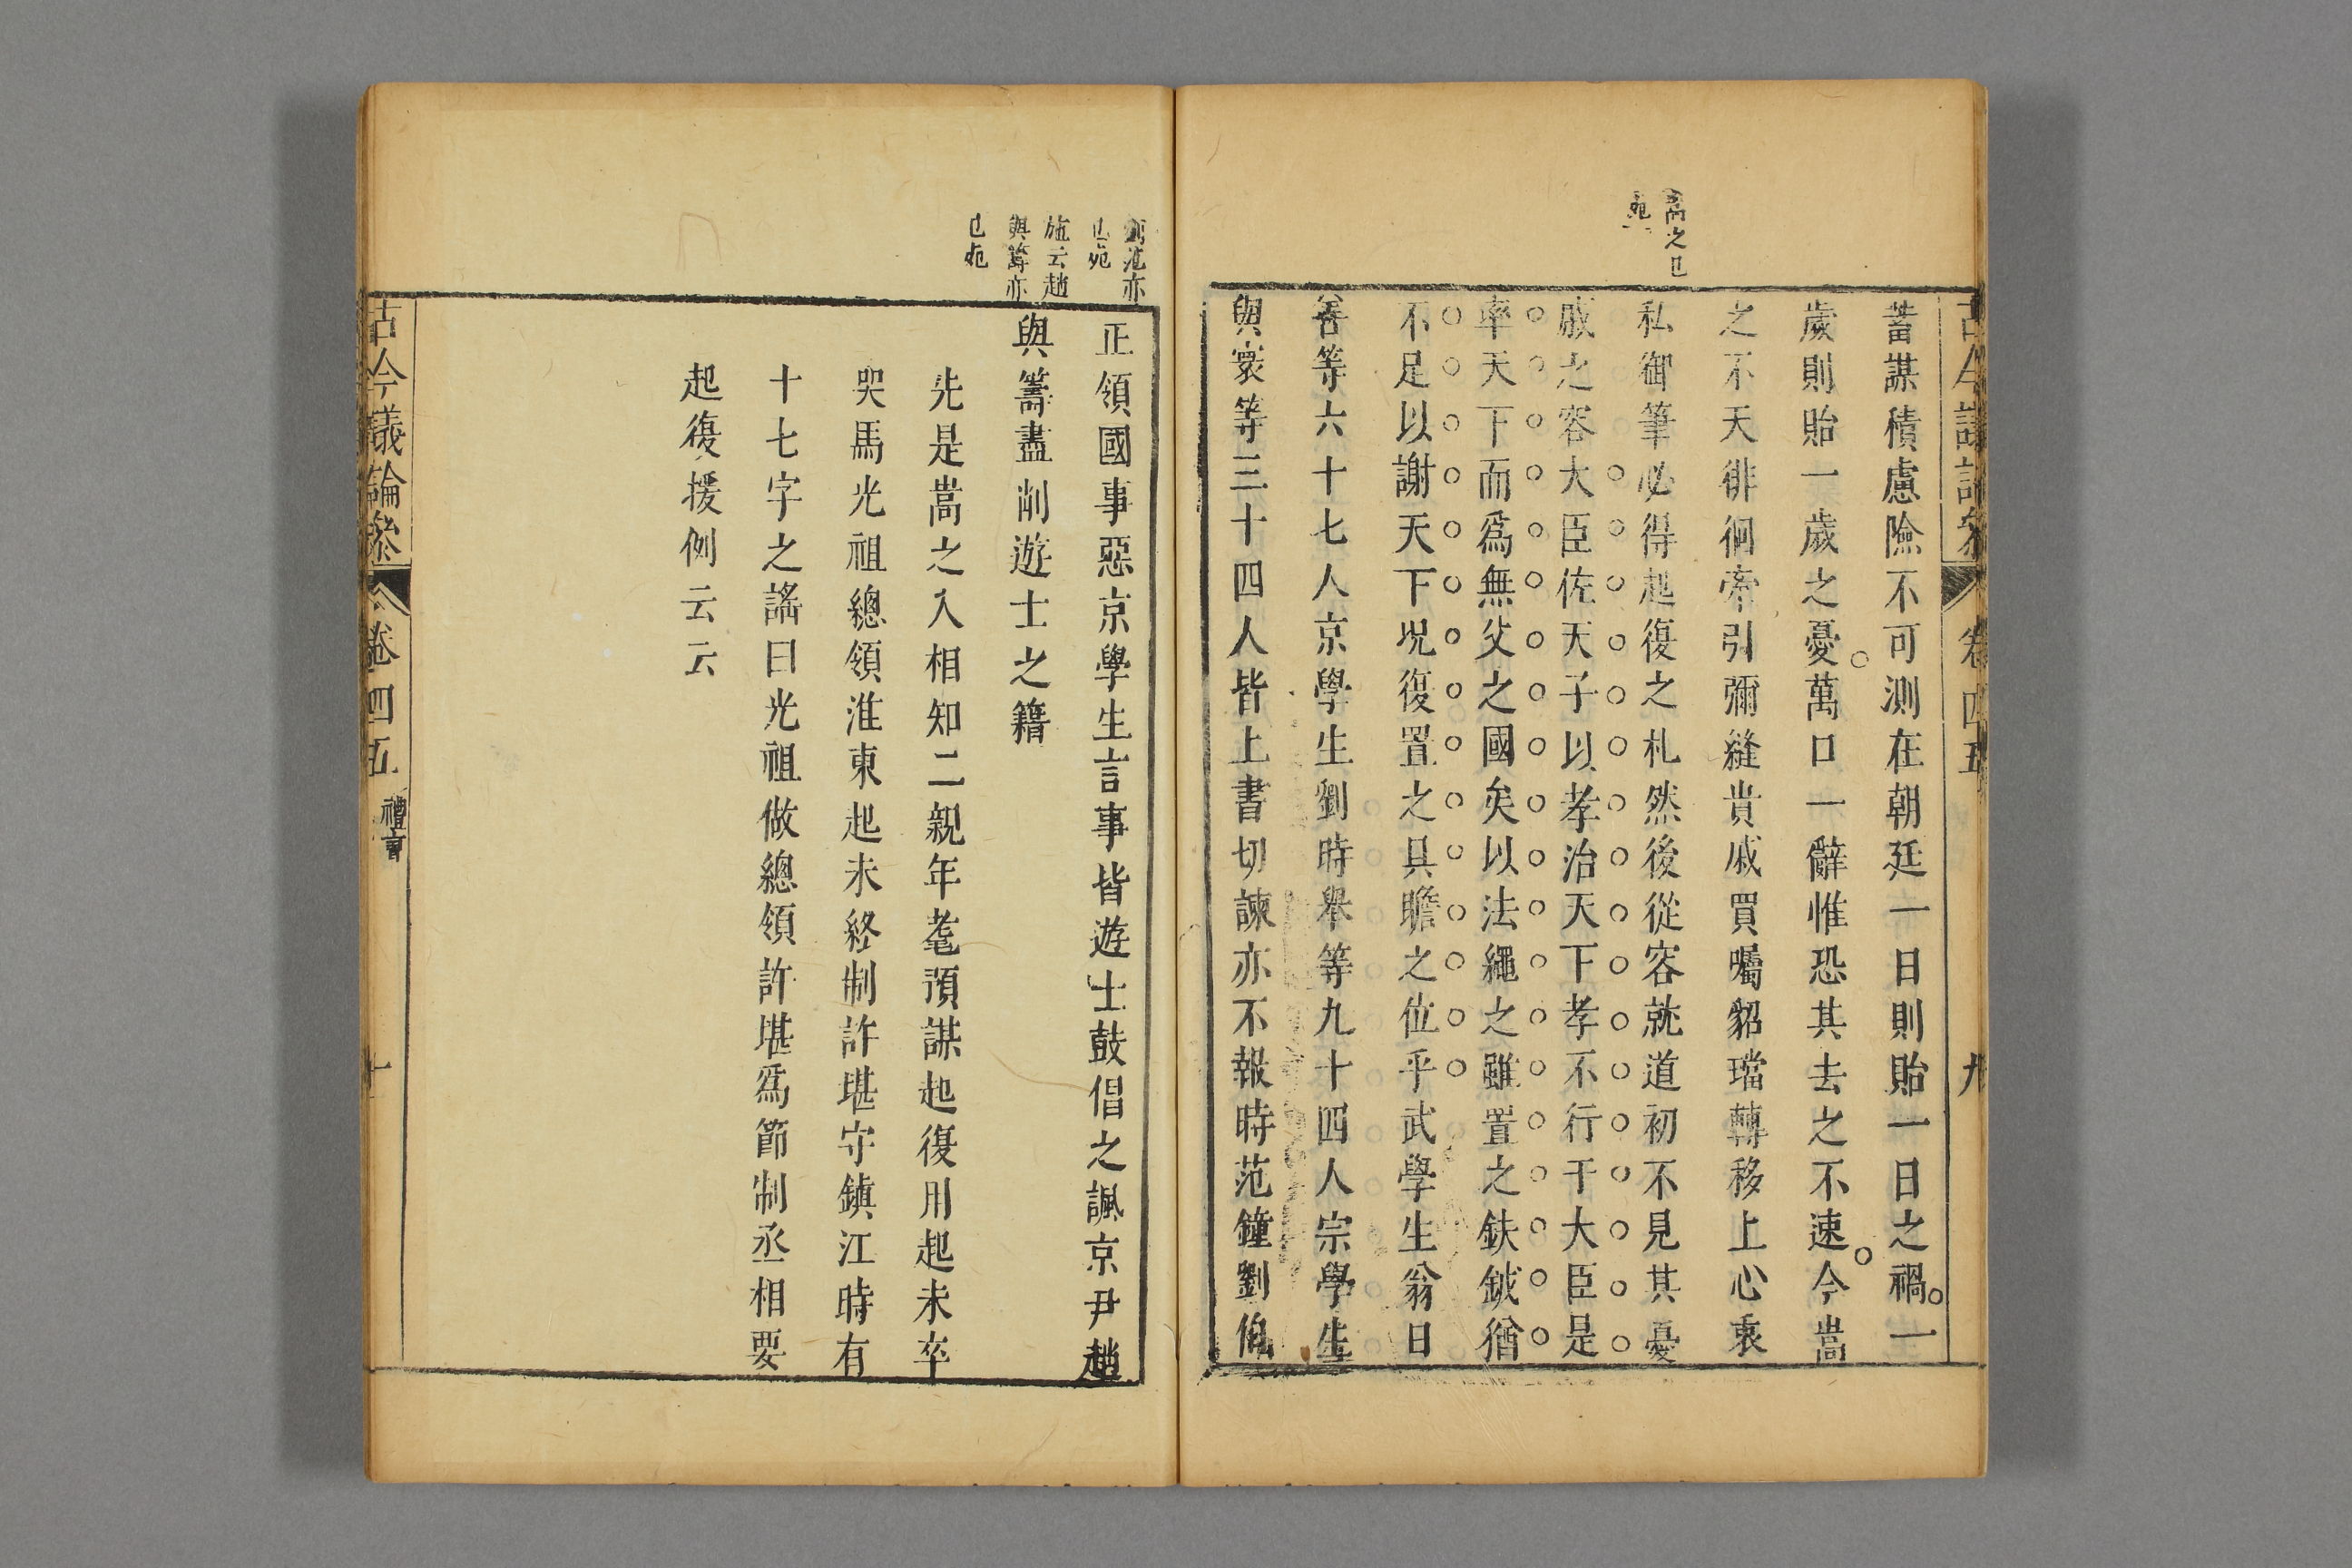 嵩之已
死
蓄謀積慮險不可測在朝廷一日則貽一日之禍一
歲則貽一歲之憂萬口一辭惟恐其去之不速今嵩
之不天徘徊牽引彌縫貴戚買囑貂璫轉移上心衷
私御筆必得起復之札然後從容就道初不見其憂
戚之容大臣佐天子以孝治天下孝不行于大臣是
率天下而爲無父之國矣以法繩之雖置之鈇鉞猶
不足以謝天下况復置之具瞻之位乎武學生翁日
善等六十七人京學生劉時舉等九十四人宗學生
與寰等三十四人皆上書切諫亦不報時范鐘劉伯
古今議論參 卷四五 九
劉范亦
已死
施云趙
與籌亦
已死
正領國事惡京學生言事皆遊士鼓倡之諷京尹趙
與籌盡削遊士之籍
先是嵩之入相知二親年耄預謀起復用起未卒
哭馬光祖總領淮東起未終制許堪守鎮江時有
十七字之謠曰光祖做總領許堪爲節制丞相要
起復援例云云
古今議論參 卷四五 禮言 十